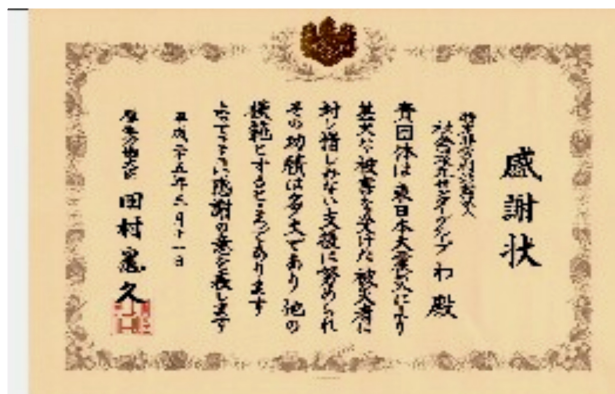 感謝状
特定非営利活動法人
社会復帰センターグループ わ 殿
貴団体は東日本大震災により
甚大な被害を受けた被災者に
対し惜しみない支援に努められ
その功績は多大であり他の
模範とするところであります
よってここに感謝の意を表します
平成二十五年三月十一日
厚生労働大臣 田村憲久